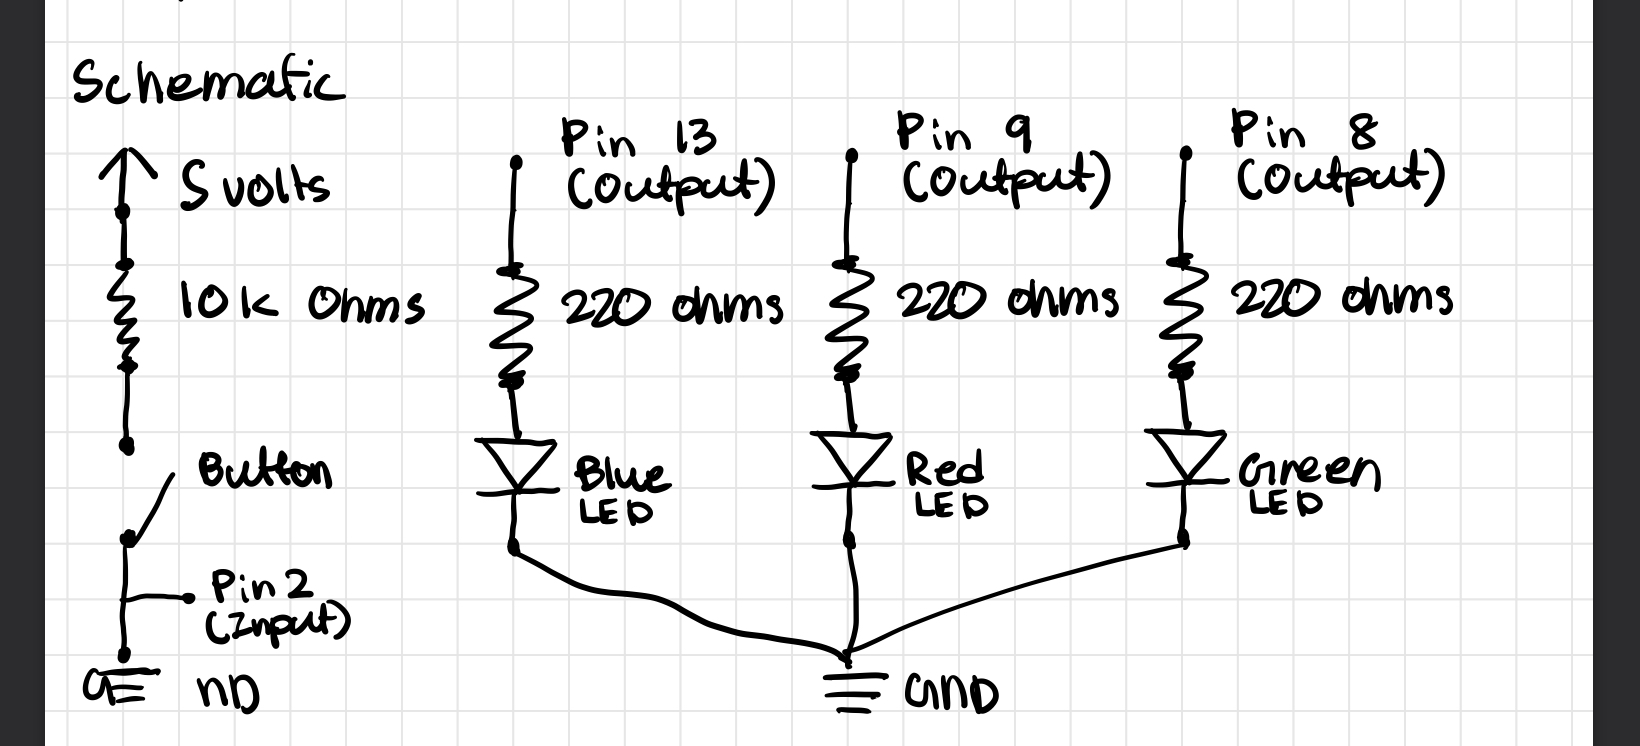 Schematic
5 volts
10k Ohms
Button
Pin 2
(Input)
GND
Pin 13
(output)
220 ohms
Blue
LED
Pin 9
(output)
220 ohms
Red
LED
Pin 8
(output)
220 ohms
Green
LED
GND